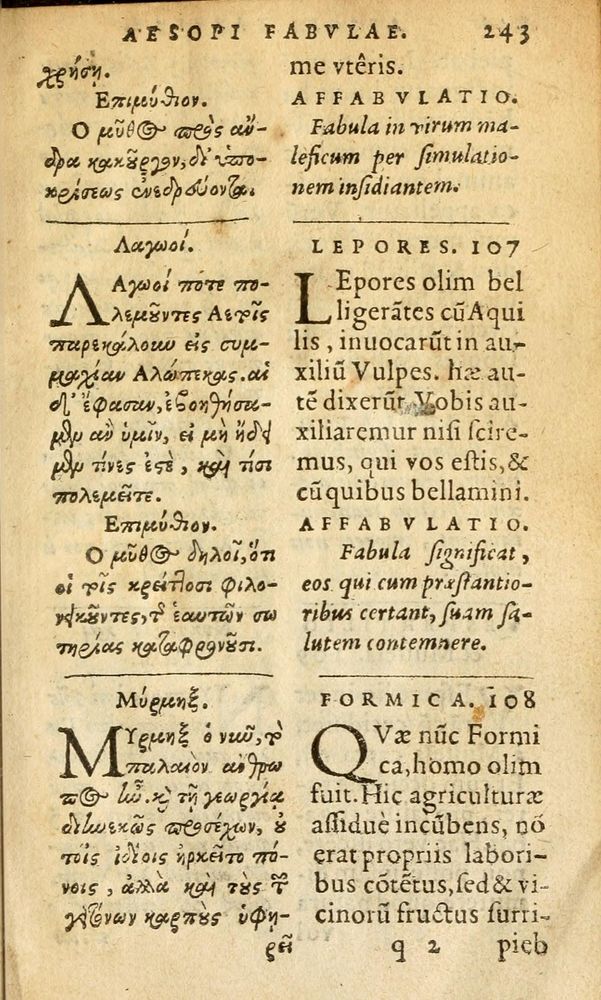 AESOPI FABVLAE. 243
χρήσῃ.
Επιμύθιον.
Ο μῦθος πρὸς ἄν-
δρα κακοῦργον, δι' ὑπο-
κρίσεως ἐνεδρεύοντα.
Λαγωοί.
ΛΑγωοί πότε πο-
λεμοῦντες Αετοῖς
παρεκάλουν εἰς συμ-
μαχίαν Αλώπεκας. αἱ
δ' ἔφασαν, ἐβοηθήσα-
μεν ἂν ὑμῖν, εἰ μὴ ᾔδει-
μεν τίνες ἐστὲ, καὶ τίσι
πολεμεῖτε.
Επιμύθιον.
Ο μῦθος δηλοῖ, ὅτι
οἱ τοῖς κρείττοσι φιλο-
νεικοῦντες, τ ἑαυτῶν σω
τηρίας καταφρονοῦσι.
Μύρμηξ.
ΜΥρμηξ ὁ νῦν, τὸ
παλαιὸν ἄνθρω
πος ἦν. κὶ τῇ γεωργίᾳ
διηνεκῶς προσέχων, οὐ
τοῖς ἰδίοις ἠρκεῖτο πό-
νοις, ἀλλὰ καὶ τοὺς τῶν
γειτόνων καρποὺς ὑφῃ-
ρεῖ
me vtêris.
AFFABVLATIO.
Fabula in virum ma-
leficum per simulatio-
nem insidiantem.
LEPORES. 107
LEpores olim bel
ligerãtes cũ Aqui
lis, inuocarũt in au-
xiliũ Vulpes. hæ au-
tẽ dixerũt, Vobis au-
xiliaremur nisi scire-
mus, qui vos estis, &
cũ quibus bellamini.
AFFABVLATIO.
Fabula significat,
eos qui cum præstantio-
ribus certant, suam sa-
lutem contemnere.
FORMICA. 108
QVæ nũc Formi
ca, homo olim
fuit. Hic agriculturæ
assiduè incũbens, nõ
erat propriis labori-
bus cõtẽtus, sed & vi-
cinorũ fructus surri-
q 2 pieb